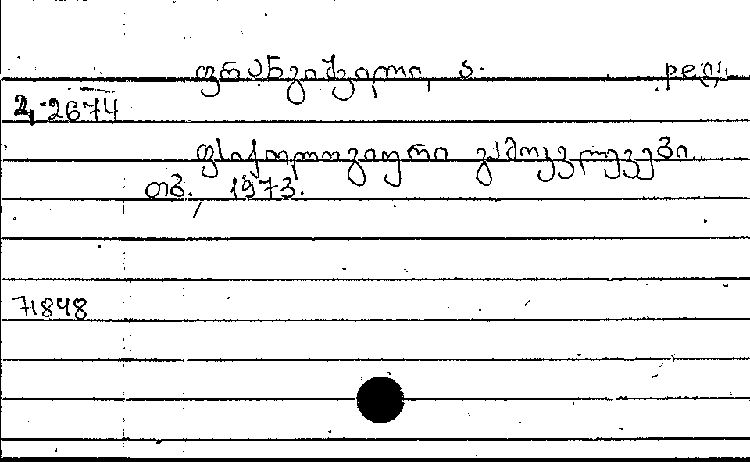 ფრანგიშვილი, ა. ред.
2-2674
ფსიქოლოგიური გამოკვლევები
თბ., 1973.
71848